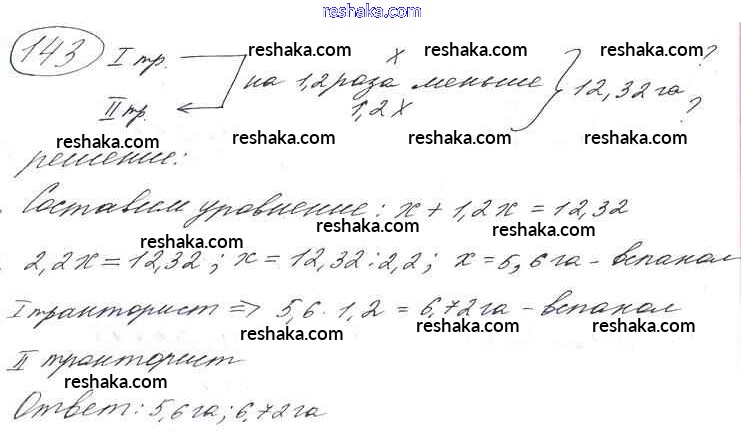 reshaka.com
143 I тр. x ?
на 1,2 раза меньше 12,32 га
II тр. 1,2x ?
решение:
Составим уравнение: x + 1,2x = 12,32
2,2x = 12,32; x = 12,32:2,2; x = 5,6 га - вспахал
I тракторист => 5,6 · 1,2 = 6,72 га - вспахал
II тракторист
Ответ: 5,6 га; 6,72 га
reshaka.com reshaka.com reshaka.com
reshaka.com reshaka.com reshaka.com
reshaka.com reshaka.com reshaka.com
reshaka.com reshaka.com
reshaka.com reshaka.com reshaka.com
reshaka.com reshaka.com reshaka.com